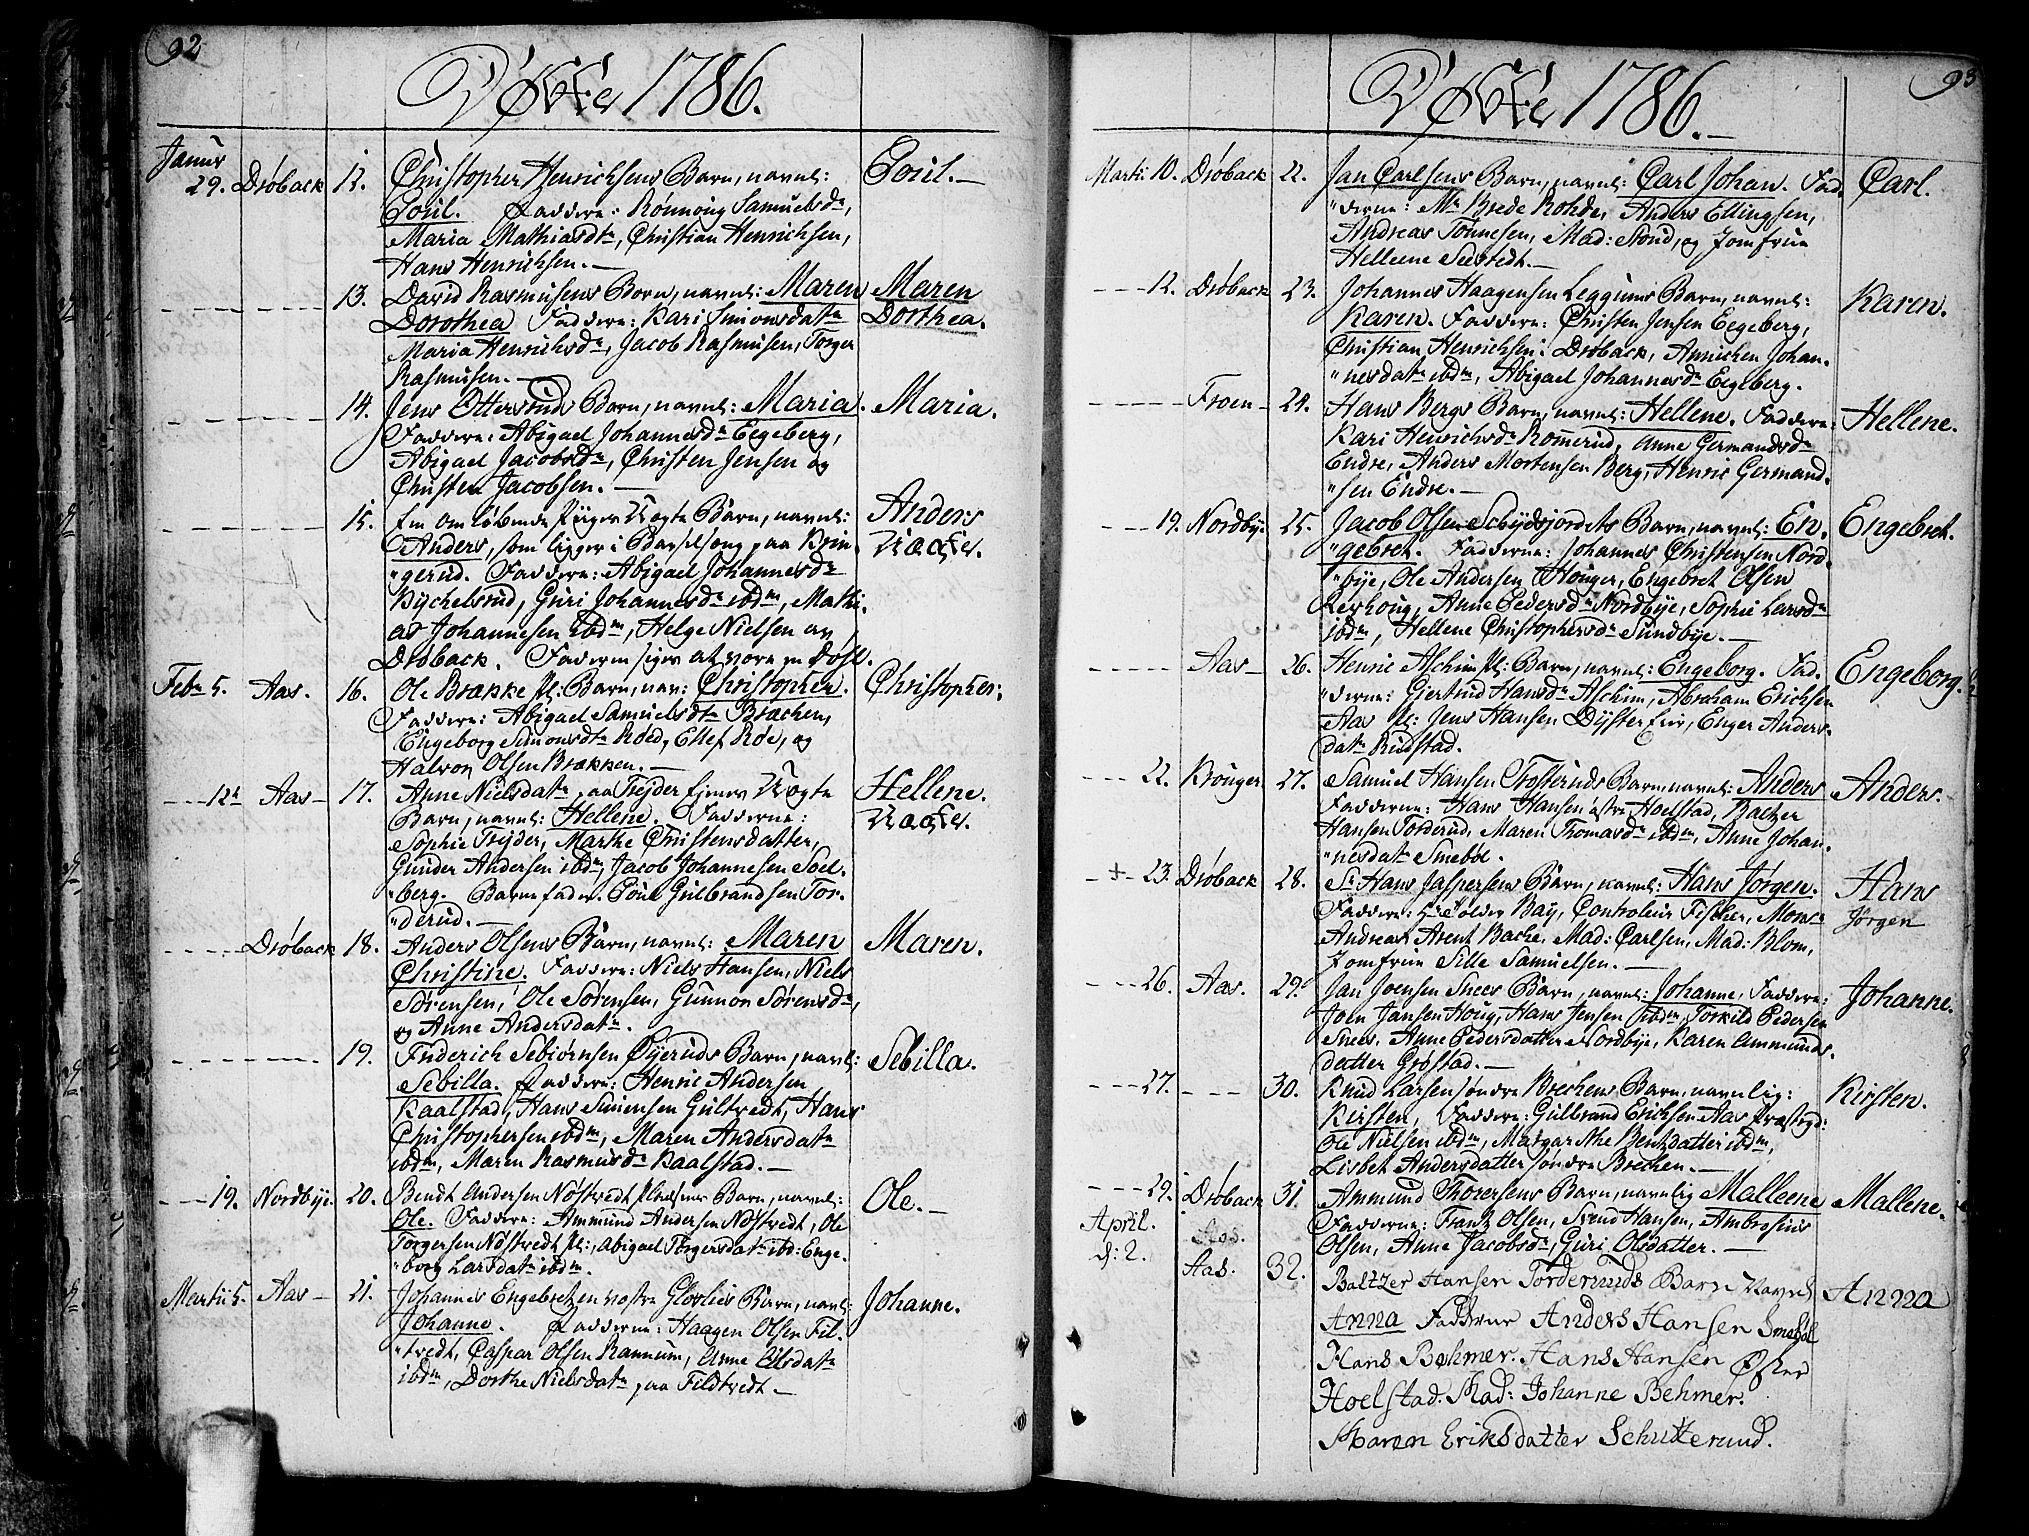 92
Døbte 1786.
Januar
29. Drøback 12. Christopher Henrichsens Barn, navnl: Poul.
Poul. Faddere: Rønnoug Samuelsdr,
Maria Mathiasdtr, Christian Henrichsen,
Hans Henrichsen.
13. David Rasmusens Barn, navnl: Maren Maren
Dorothea Faddere: Kari Simonsdatr Dorthea.
Maria Henrichsdr, Jacob Rasmusen, Torger
Rasmusen.
14. Jens Ottersruds Barn, navnl: Maria. Maria.
Faddere: Abigael Johannesdr Eegeberg,
Abigael Jacobsdr, Christen Jensen og
Christen Jacobsen.
15. En om løbende Piiges Uægte Barn, navnl: Anders
Anders, som ligger i Barselseng paa Krin- Uægte.
"gerud. Faddere: Abigael Johannesdr
Bychelsrud, Guri Johannesdr ibdm, Mathi-
as Johannesen ibdm, Helge Nielsen av
Drøback. Faderen siges at være en
Febr 5. Aas. 16. Ole Brække Pl: Barn, nav: Christopher. Christopher.
Faddere: Abigael Samuelsdtr Bræchen,
Engeborg Simonsdtr Roed, Ellef Roe, og
Halvor Olsen Brækken.
12te Aas 17. Anne Nielsdatr paa Frejder hendes Uægte Hellene.
Barn, navnl: Hellene. Faddere: Uægte.
Sophie Frejder, Marthe Christensdatter,
Gunder Andersen ibdm, Jacob Johannesen Soel-
"berg. Barnefader Poul Gulbrandsen Tor-
"derud.
Drøback 18. Anders Olsens Barn, navnl: Maren Maren.
Christine. Faddere: Niels Hansen, Niels
Sørensen, Ole Sørensen, Gunnor Sørensdr,
og Anne Andersdatr.
19. Friderich Sebiørnsen Øyeruds Barn, navnl: Sebilla.
Sebilla. Faddere: Henric Andersen
Kaalstad, Hans Simensen Gultvedt, Hans
Christophersen ibdm, Maren Andersdatr
ibdm, Maren Rasmusdr Kaalstad.
19. Nordbye 20. Bendt Andersen Nøstvedt Pladsens Barn, navnl: Ole.
Ole. Faddere: Ammund Andersen Nøstvedt, Ole
Torgersen Nøstvedt Pl:, Abigael Torgersdatr ibd: Enge-
"borg Larsdatr ibdm.
Martii 5. Aas 21. Johannes Engebretzen vestre Glorlies Barn, navnl: Johanne.
Johanne. Faddere: Haagen Olsen Fil-
"tvedt, Caspar Olsen Rannum, Anne Olsdatr
ibdm, Dorthe Nielsdatr paa Fildtvedt
93
Døbte 1786.
Martii 10. Drøback 22. Jan Carlsens Barn, navnl: Carl Johan. Fad- Carl.
"derne: Mr Brede Rohde, Anders Ellingsen,
Andreas Tønnesen, Mad: Stoud, og Jomfrue
Helleene Seestedt.
12. Drøback 23. Johannes Haagensen Leggiums Barn, navnl: Karen.
Karen. Faddere: Christen Jensen Eegeberg,
Christian Henrichsen i Drøback, Annichen Johan-
"nesdatr ibdm, Abigael Johannesdr Eegeberg.
Froen 24. Hans Bergs Barn, navnl: Hellene. Faddere: Hellene.
Kari Henrichsdr Romerud, Anne Germandsdr
Endre, Anders Mortensen Berg, Henric Germand-
"sen Endre.
19. Nordbye 25. Jacob Olsen Schydsjordets Barn, navnl: En- Engebret.
"gebret. Fadderne: Johannes Christensen Nord-
"bye, Ole Andersen Houger, Engebret Olsen
Revhoug, Anne Pedersdr Nordbye, Sophie Larsdr
ibdm, Hellene Christophersdr Sundbye.
Aas 26. Henric Aschim Pl: Barn, navnl: Engeborg. Fad- Engeborg.
"derne: Gjertrud Hansdr Aschim, Abraham Erichsen
Aas Pl: Jens Hansen Dyster Eie, Enger Anders-
datr Rudstad.
22. Krouger 27. Samuel Hansen Trosteruds Barn, navnl: Anders Anders.
Fadderne: Hans Hansen østre Hoelstad, Baltzer
Hansen Torderud, Maren Thomasdr ibdm, Anne Johan-
"nesdatr Smebøl.
+ 23. Drøback 28. Sr Hans Jaspersens Barn, navnl: Hans Jørgen. Hans
Fadderne: Hr Tolder Bay, Controleur Fischer, Monsr Jørgen
Andreas Arent Backe, Mad: Carlsen, Mad: Blom,
Jomfrue Sille Samuelsen.
26. Aas. 29. Jan Joensen Snees Barn, navnl: Johanne. Faddere: Johanne.
Joen Jansen Houg, Hans Jensen ibdm, Torkild Pedersen
Snees. Anne Pedersdatter Nordbye, Karen Ammunds-
datter Grøstad.
27. 30. Knud Larsen søndre Brechens Barn, navnlig: Kirsten.
Kirsten, Faddere: Gulbrand Erichsen Aas Præstegd:
Ole Nielsen ibdm, Margarethe Bentzdatter ibdm,
Lisbet Andersdatter søndre Brechen.
29. Drøback 31. Ammund Thoresens Barn, navnlig Malleene Mallene.
Fadderne: Frantz Olsen, Svend Hansen, Ambrosius
Olsen, Anne Jacobsdr, Guri Olsdatter.
April.
d: 2. Aas. 32. Baltzer Hansen Torderuds Barn Navnl Anna
Anna Fadderne Anders Hansen Smebøl
Hans Behmer. Hans Hansen Øster
Hoelstad. Mad: Johanne Behmer.
Maren Eriksdatter Schutterud.